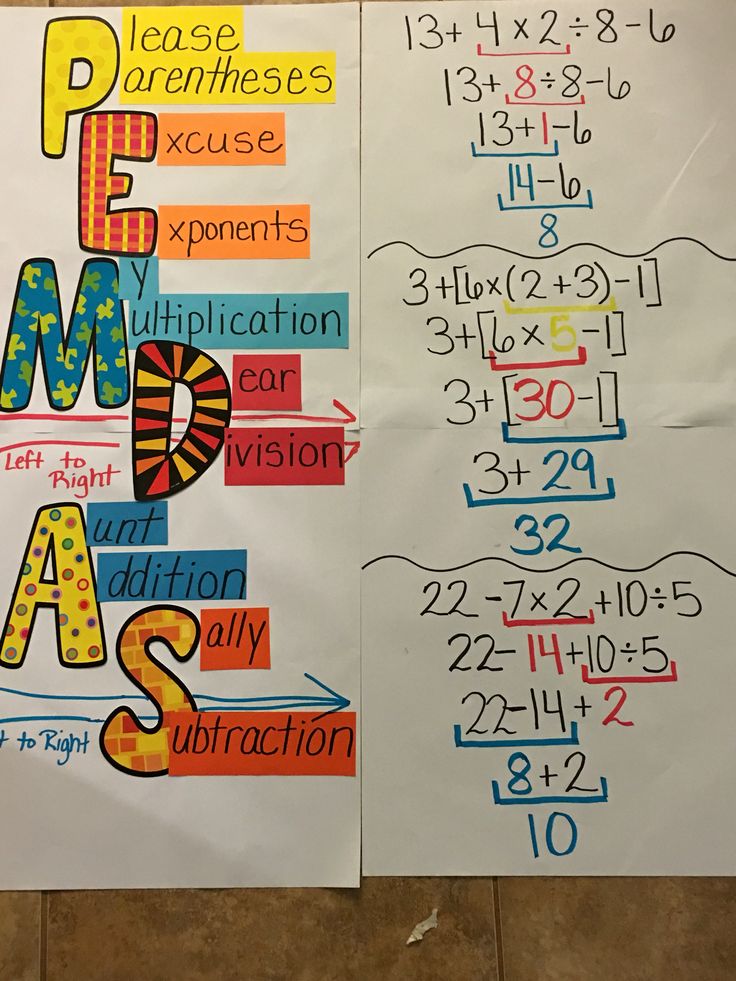 Please
Parentheses
Excuse
Exponents
My
Multiplication
Dear
Division
Left to
Right
Aunt
Addition
Sally
to Right
Subtraction
13+ 4×2÷8-6
13+ 8÷8-6
13+1-6
14-6
8
3+[6×(2+3)-1]
3+[6×5-1]
3+[30-1]
3+29
32
22-7×2+10÷5
22-14+10÷5
22-14+2
8+2
10